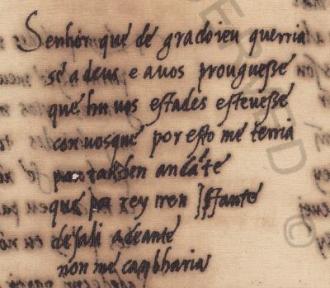 Senhor que de grado ieu querria
se a deus e a uos prouguesse
que hu uos estades esteuesse
con uosque por esto me terria
por tan ben andãte
que rey nen Iffante
des ali adeante
non me cambharia